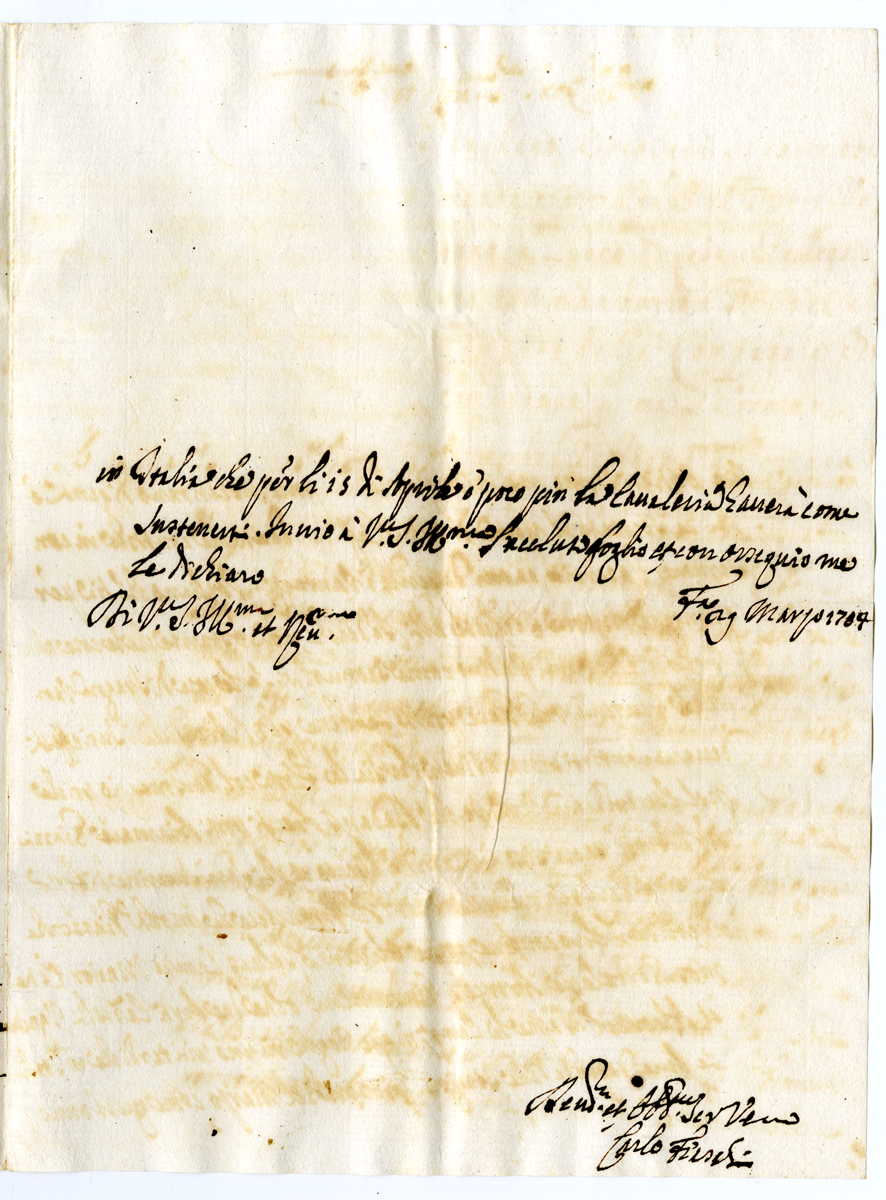 in Italia che per li 15 di Aprile ò poco piu la Cavaleria haverà come
sustenersi. Invio à V.S. Ill.ma l'accluso foglio et con ossequio me
le dichiaro
Di V.S. Ill.ma et Rev.ma
29 Marzo 1704
et Obb. Ser Vero
Carlo Fieschi